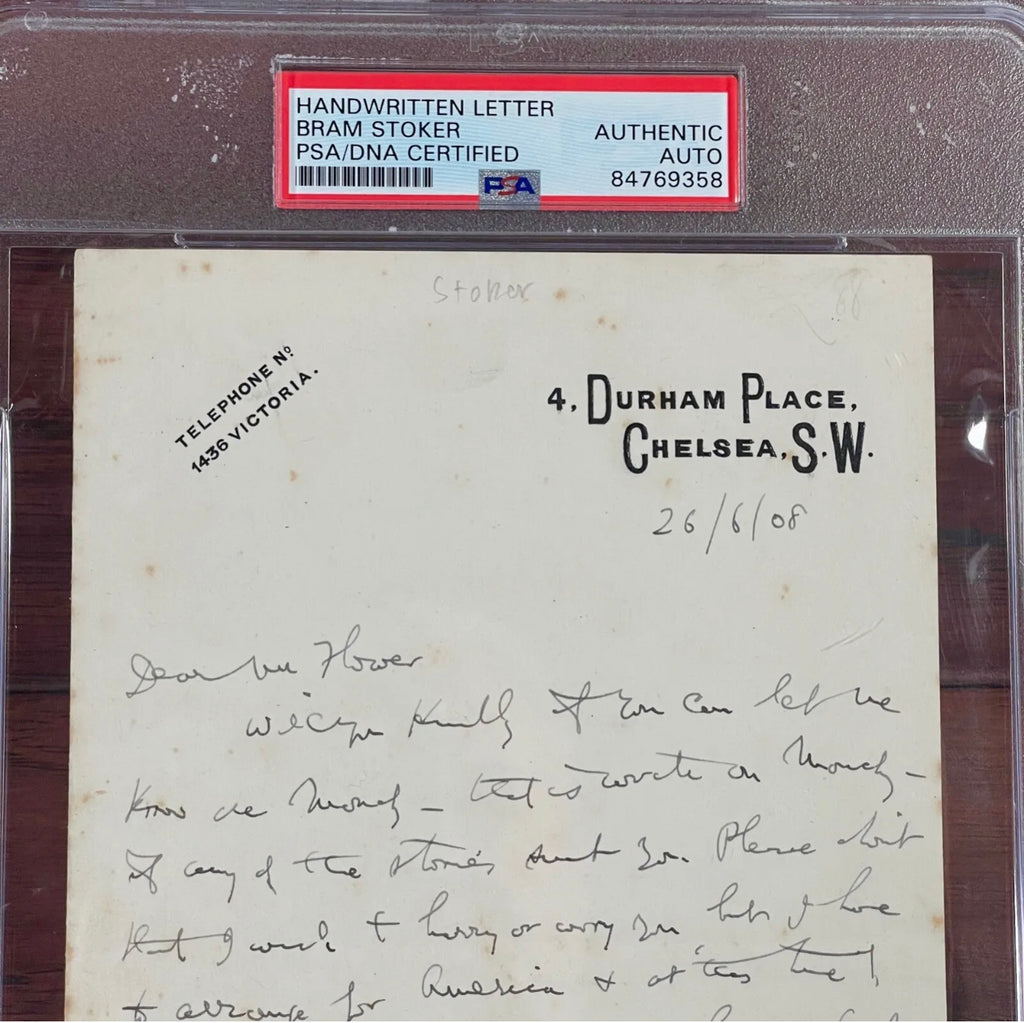 HANDWRITTEN LETTER
BRAM STOKER
PSA/DNA CERTIFIED
AUTHENTIC
AUTO
84769358
PSA
Stoker
TELEPHONE No
1436 VICTORIA.
4, DURHAM PLACE,
CHELSEA, S.W.
26/6/08
Dear Mr Flower
Will you Kindly if you can let me
Know on Monday – that is write on Monday –
If any of the stories suit you. Please don't
that I wish to hurry or worry you but I have
to arrange for America & at this time